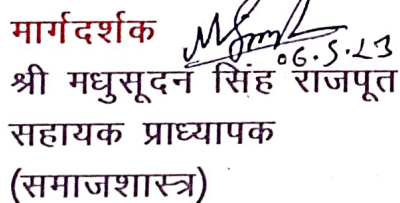 मार्गदर्शक
06.5.23
श्री मधुसूदन सिंह राजपूत
सहायक प्राध्यापक
(समाजशास्त्र)